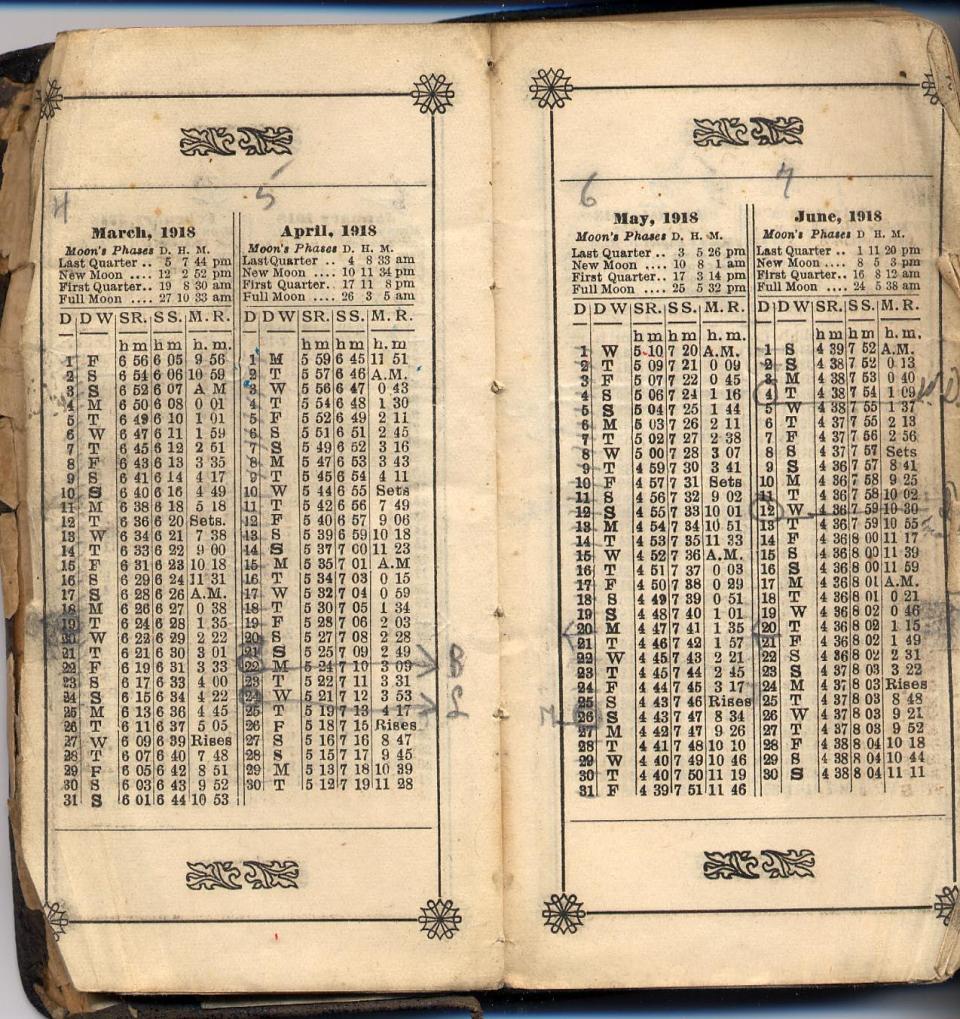 4
5
March, 1918
Moon's Phases D. H. M.
Last Quarter .. 5 7 44 pm
New Moon .... 12 2 52 pm
First Quarter.. 19 8 30 am
Full Moon .... 27 10 33 am
D D W SR. S S. M. R.
h m h m h. m.
1 F 6 56 6 05 9 56
2 S 6 54 6 06 10 59
3 S 6 52 6 07 A M
4 M 6 50 6 08 0 01
5 T 6 49 6 10 1 01
6 W 6 47 6 11 1 59
7 T 6 45 6 12 2 51
8 F 6 43 6 13 3 35
9 S 6 41 6 14 4 17
10 S 6 40 6 16 4 49
11 M 6 38 6 18 5 18
12 T 6 36 6 20 Sets.
13 W 6 34 6 21 7 38
14 T 6 33 6 22 9 00
15 F 6 31 6 23 10 18
16 S 6 29 6 24 11 31
17 S 6 28 6 26 A.M.
18 M 6 26 6 27 0 38
19 T 6 24 6 28 1 35
20 W 6 22 6 29 2 22
21 T 6 21 6 30 3 01
22 F 6 19 6 31 3 33
23 S 6 17 6 33 4 00
24 S 6 15 6 34 4 22
25 M 6 13 6 36 4 45
26 T 6 11 6 37 5 05
27 W 6 09 6 39 Rises
28 T 6 07 6 40 7 48
29 F 6 05 6 42 8 51
30 S 6 03 6 43 9 52
31 S 6 01 6 44 10 53
April, 1918
Moon's Phases D. H. M.
Last Quarter .. 4 8 33 am
New Moon .... 10 11 34 pm
First Quarter.. 17 11 8 pm
Full Moon .... 26 3 5 am
D D W SR. S S. M. R.
h m h m h. m.
1 M 5 59 6 45 11 51
2 T 5 57 6 46 A.M.
3 W 5 56 6 47 0 43
4 T 5 54 6 48 1 30
5 F 5 52 6 49 2 11
6 S 5 51 6 51 2 45
7 S 5 49 6 52 3 16
8 M 5 47 6 53 3 43
9 T 5 45 6 54 4 11
10 W 5 44 6 55 Sets
11 T 5 42 6 56 7 49
12 F 5 40 6 57 9 06
13 S 5 39 6 59 10 18
14 S 5 37 7 00 11 23
15 M 5 35 7 01 A.M
16 T 5 34 7 03 0 15
17 W 5 32 7 04 0 59
18 T 5 30 7 05 1 34
19 F 5 28 7 06 2 03
20 S 5 27 7 08 2 28
21 S 5 25 7 09 2 49
22 M 5 24 7 10 3 09 B
23 T 5 22 7 11 3 31
24 W 5 21 7 12 3 53
25 T 5 19 7 13 4 17
26 F 5 18 7 15 Rises
27 S 5 16 7 16 8 47
28 S 5 15 7 17 9 45
29 M 5 13 7 18 10 39
30 T 5 12 7 19 11 28
6
7
May, 1918
Moon's Phases D. H. M.
Last Quarter .. 3 5 26 pm
New Moon .... 10 8 1 am
First Quarter.. 17 3 14 pm
Full Moon .... 25 5 32 pm
D D W SR. S S. M. R.
h m h m h. m.
1 W 5 10 7 20 A.M.
2 T 5 09 7 21 0 09
3 F 5 07 7 22 0 45
4 S 5 06 7 24 1 16
5 S 5 04 7 25 1 44
6 M 5 03 7 26 2 11
7 T 5 02 7 27 2 38
8 W 5 00 7 28 3 07
9 T 4 59 7 30 3 41
10 F 4 57 7 31 Sets
11 S 4 56 7 32 9 02
12 S 4 55 7 33 10 01
13 M 4 54 7 34 10 51
14 T 4 53 7 35 11 33
15 W 4 52 7 36 A.M.
16 T 4 51 7 37 0 03
17 F 4 50 7 38 0 29
18 S 4 49 7 39 0 51
19 S 4 48 7 40 1 01
20 M 4 47 7 41 1 35
21 T 4 46 7 42 1 57
22 W 4 45 7 43 2 21
23 T 4 45 7 44 2 45
24 F 4 44 7 45 3 17
25 S 4 43 7 46 Rises
26 S 4 43 7 47 8 34
27 M 4 42 7 47 9 26
28 T 4 41 7 48 10 10
29 W 4 40 7 49 10 46
30 T 4 40 7 50 11 19
31 F 4 39 7 51 11 46
June, 1918
Moon's Phases D H. M.
Last Quarter .. 1 11 20 pm
New Moon .... 8 5 3 pm
First Quarter.. 16 8 12 am
Full Moon .... 24 5 38 am
D D W SR. S S. M. R.
h m h m h. m.
1 S 4 39 7 52 A.M.
2 S 4 38 7 52 0 13
3 M 4 38 7 53 0 40
4 T 4 38 7 54 1 09
5 W 4 38 7 55 1 37
6 T 4 37 7 55 2 13
7 F 4 37 7 56 2 56
8 S 4 37 7 57 Sets
9 S 4 36 7 57 8 41
10 M 4 36 7 58 9 25
11 T 4 36 7 58 10 02
12 W 4 36 7 59 10 30
13 T 4 36 7 59 10 55
14 F 4 36 8 00 11 17
15 S 4 36 8 00 11 39
16 S 4 36 8 00 11 59
17 M 4 36 8 01 A.M.
18 T 4 36 8 01 0 21
19 W 4 36 8 02 0 46
20 T 4 36 8 02 1 15
21 F 4 36 8 02 1 49
22 S 4 36 8 02 2 31
23 S 4 37 8 03 3 22
24 M 4 37 8 03 Rises
25 T 4 37 8 03 8 48
26 W 4 37 8 03 9 21
27 T 4 37 8 03 9 52
28 F 4 38 8 04 10 18
29 S 4 38 8 04 10 44
30 S 4 38 8 04 11 11